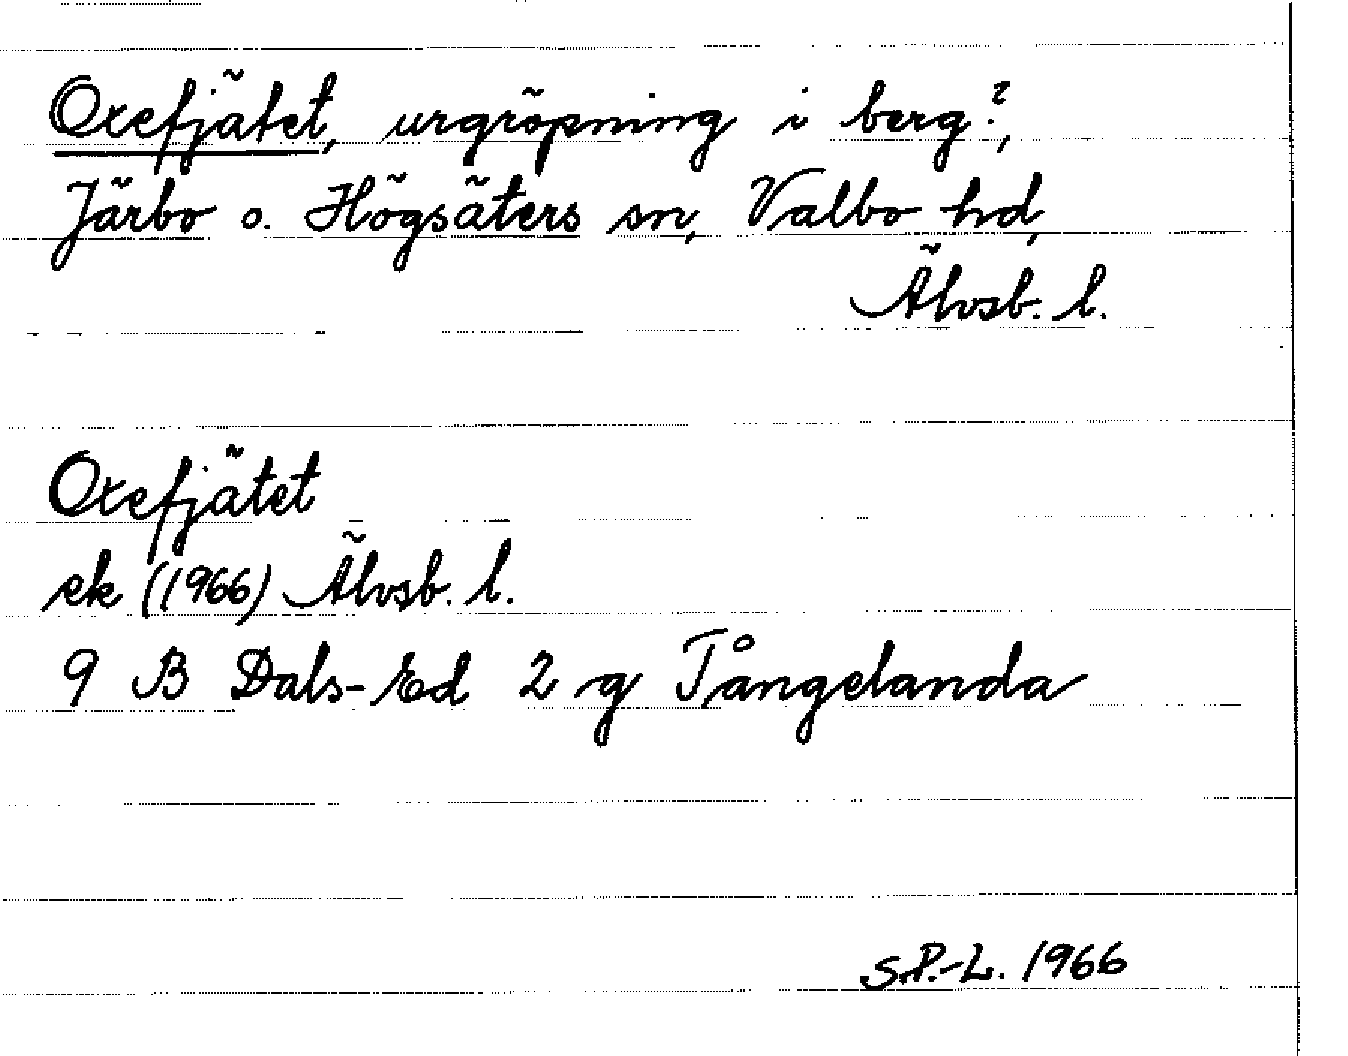 Oxefjätet, urgröpning i berg?,
Järbo o. Högsäters sn, Valbo hd,
Älvsb. l.
Oxefjätet
ek (1966) Älvsb. l.
9 B Dals-Ed 2 g Tångelanda
S.P.-L. 1966